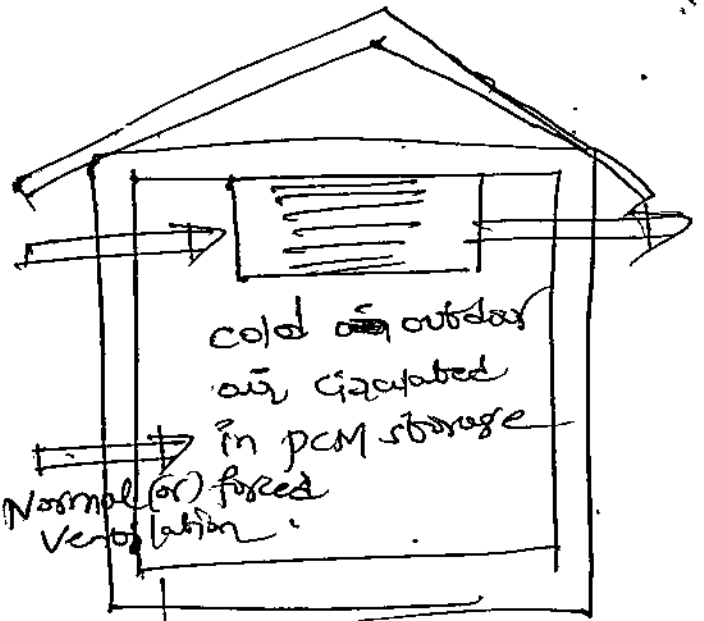 cold outdoor
air circulated
in PCM storage
Normal (or) forced
Ventilation.